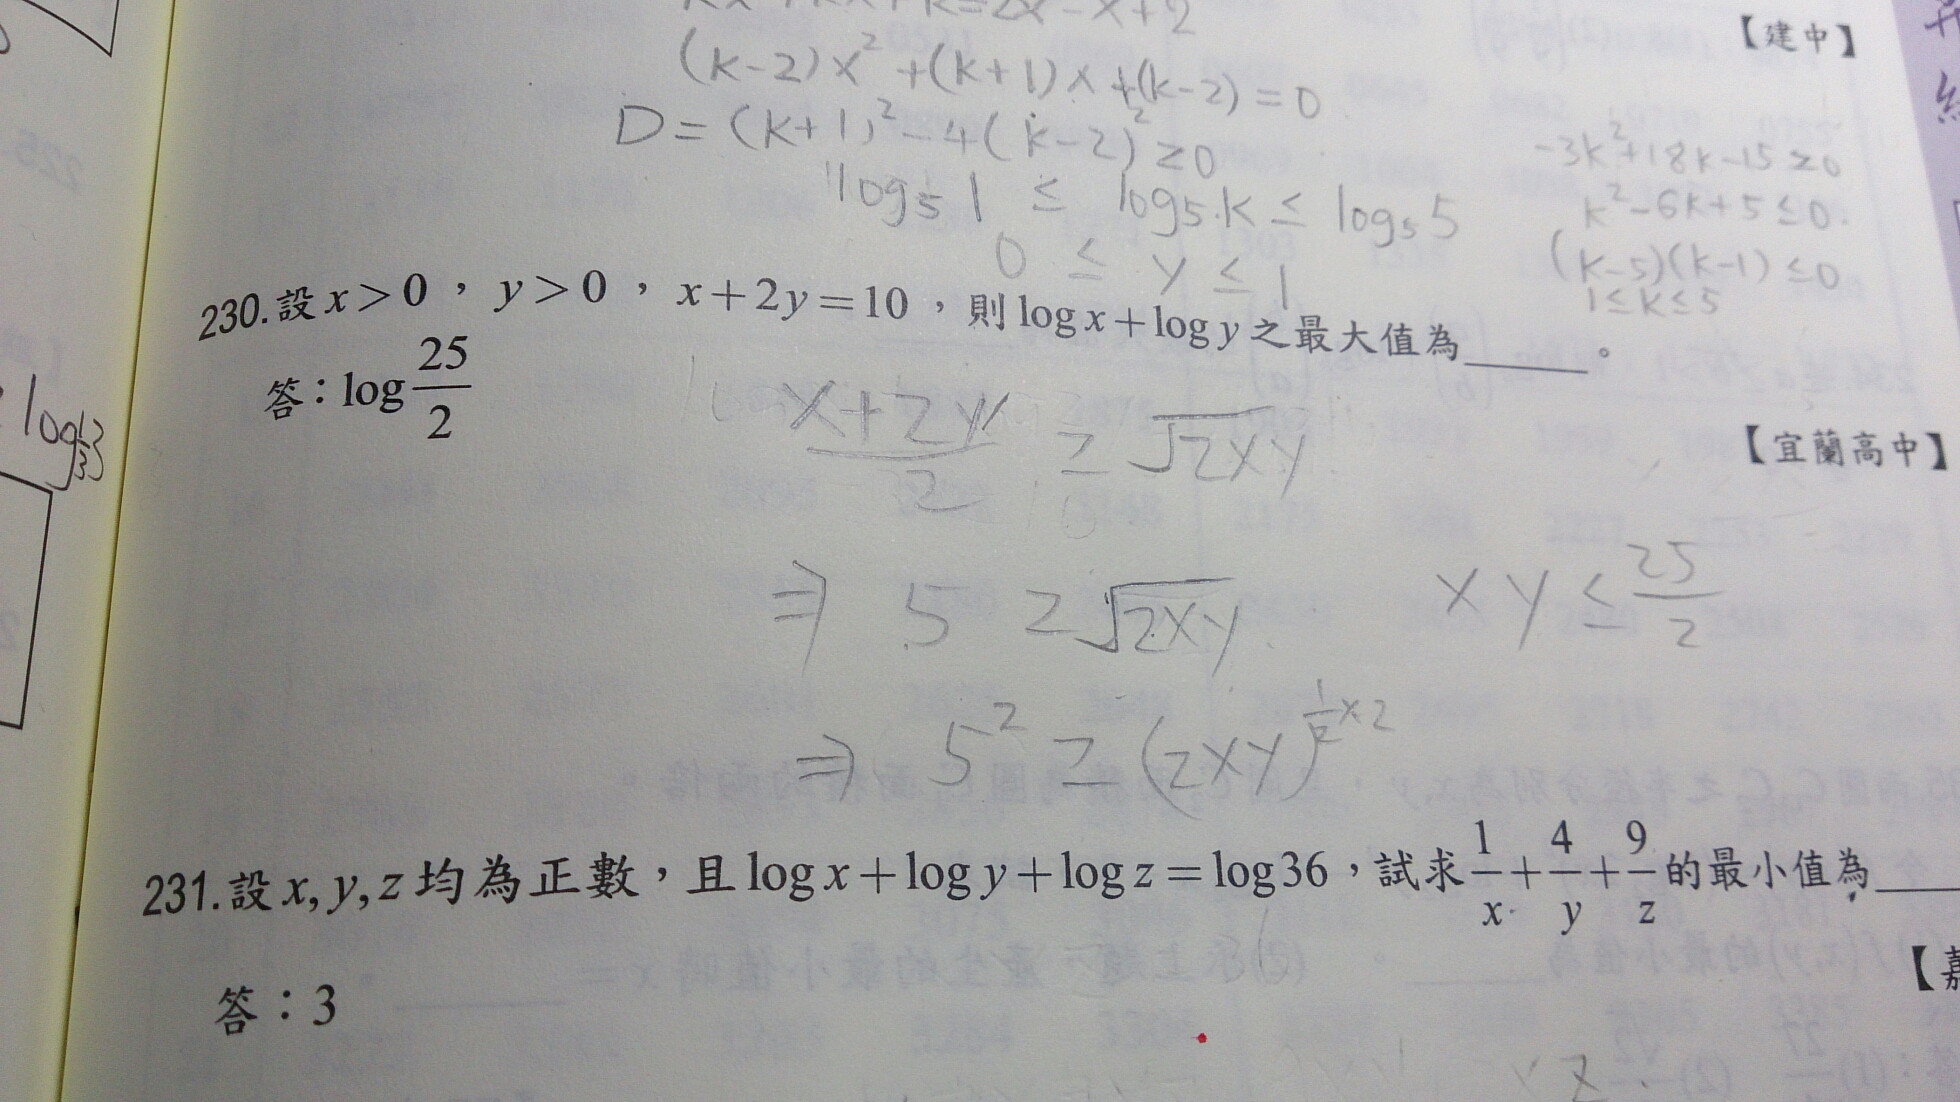 【建中】
(k-2)x²+(k+1)x+(k-2)=0
D=(k+1)²-4(k-2)²≥0
-3k²+18k-15≥0
log₅1 ≤ log₅k ≤ log₅5
k²-6k+5≤0
0 ≤ y ≤ 1
(k-5)(k-1)≤0
1≤k≤5
230.設x>0，y>0，x+2y=10，則log x+log y之最大值為_____。
答：log 25/2
【宜蘭高中】
(x+2y)/2 ≥ √2xy
⇒ 5 ≥ √2xy
xy ≤ 25/2
⇒ 5² ≥ (2xy)^(1/2×2)
231.設x, y, z均為正數，且log x+log y+log z=log 36，試求1/x+4/y+9/z的最小值為____
答：3